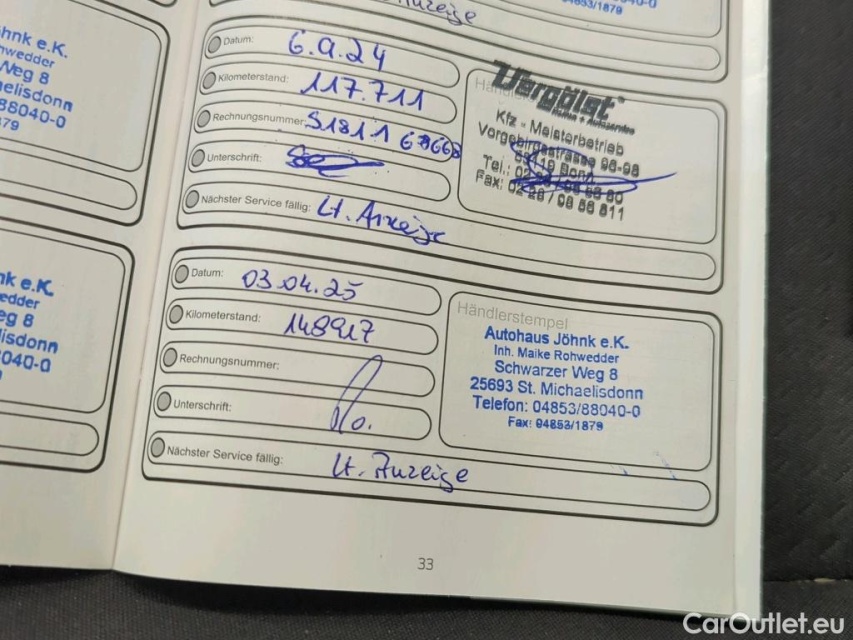 Anzeige
04853/1879
Jöhnk e.K.
Rohwedder
Weg 8
Michaelisdonn
88040-0
1879
Datum: 6.9.24
Kilometerstand: 117.711
Rechnungsnummer:
Unterschrift:
Nächster Service fällig: Lt. Anzeige
Vergölst
Reifen + Autoservice
Kfz - Meisterbetrieb
Vorgebirgsstrasse 96-98
Bonn
Tel.:
Fax: 02 28 / 98 56 811
nk e.K.
edder
eg 8
lisdonn
040-0
Datum: 03.04.25
Kilometerstand: 148917
Rechnungsnummer:
Unterschrift:
Nächster Service fällig: Lt. Anzeige
Händlerstempel
Autohaus Jöhnk e.K.
Inh. Maike Rohwedder
Schwarzer Weg 8
25693 St. Michaelisdonn
Telefon: 04853/88040-0
Fax: 04853/1879
33
CarOutlet.eu